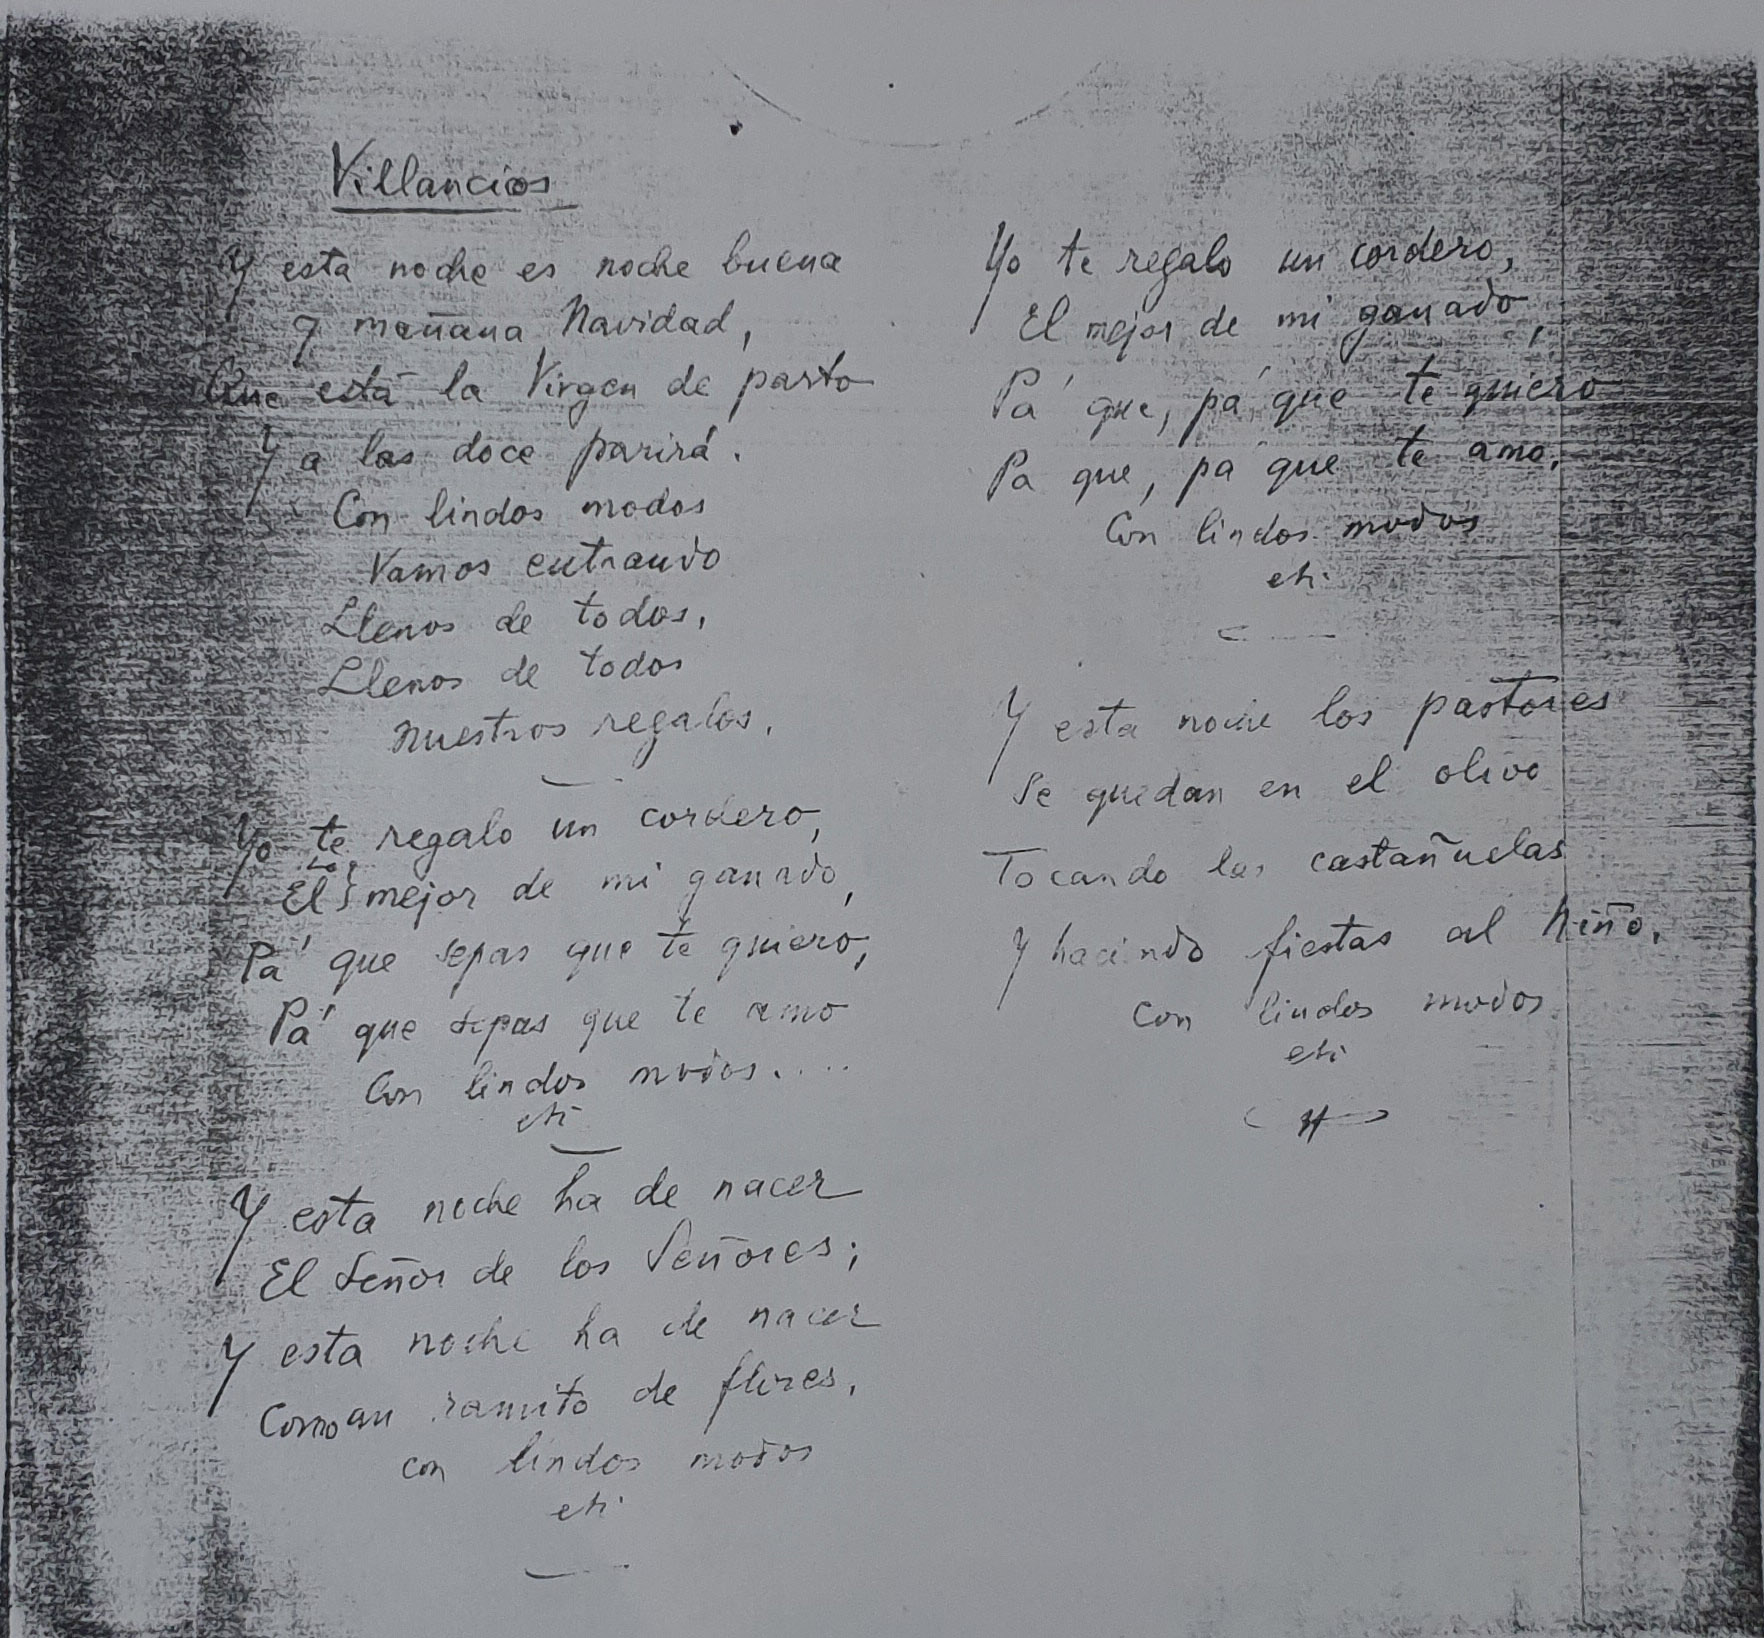 Villancios
Y esta noche es noche buena
y mañana Navidad,
Que está la Virgen de parto
Y a las doce parirá.
Con lindos modos
Vamos entrando
Llenos de todos,
Llenos de todos
nuestros regalos.
Yo te regalo un cordero,
Los
El mejor de mi ganado,
Pá que sepas que te quiero,
Pá que sepas que te amo
Con lindos modos....
etc
Y esta noche ha de nacer
El Señor de los Señores;
Y esta noche ha de nacer
Como un ramito de flores.
con lindos modos
etc
Yo te regalo un cordero,
El mejor de mi ganado,
Pá que, pá que te quiero
Pa que, pa que te amo.
Con lindos modos
etc.
Y esta noche los pastores
Se quedan en el olivo
Tocando las castañuelas
Y haciendo fiestas al Niño.
con lindos modos.
etc